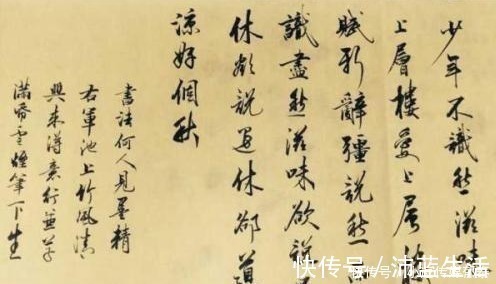 少年不識愁滋味
上層樓愛上層樓
賦新辭彊說愁而
識盡愁滋味欲說
休欲說還休卻道
涼好個秋
書法何人見墨精
右軍池上竹風清
興來得意行並草
滿帋雲煙筆下生
快传号／沛蓝生活